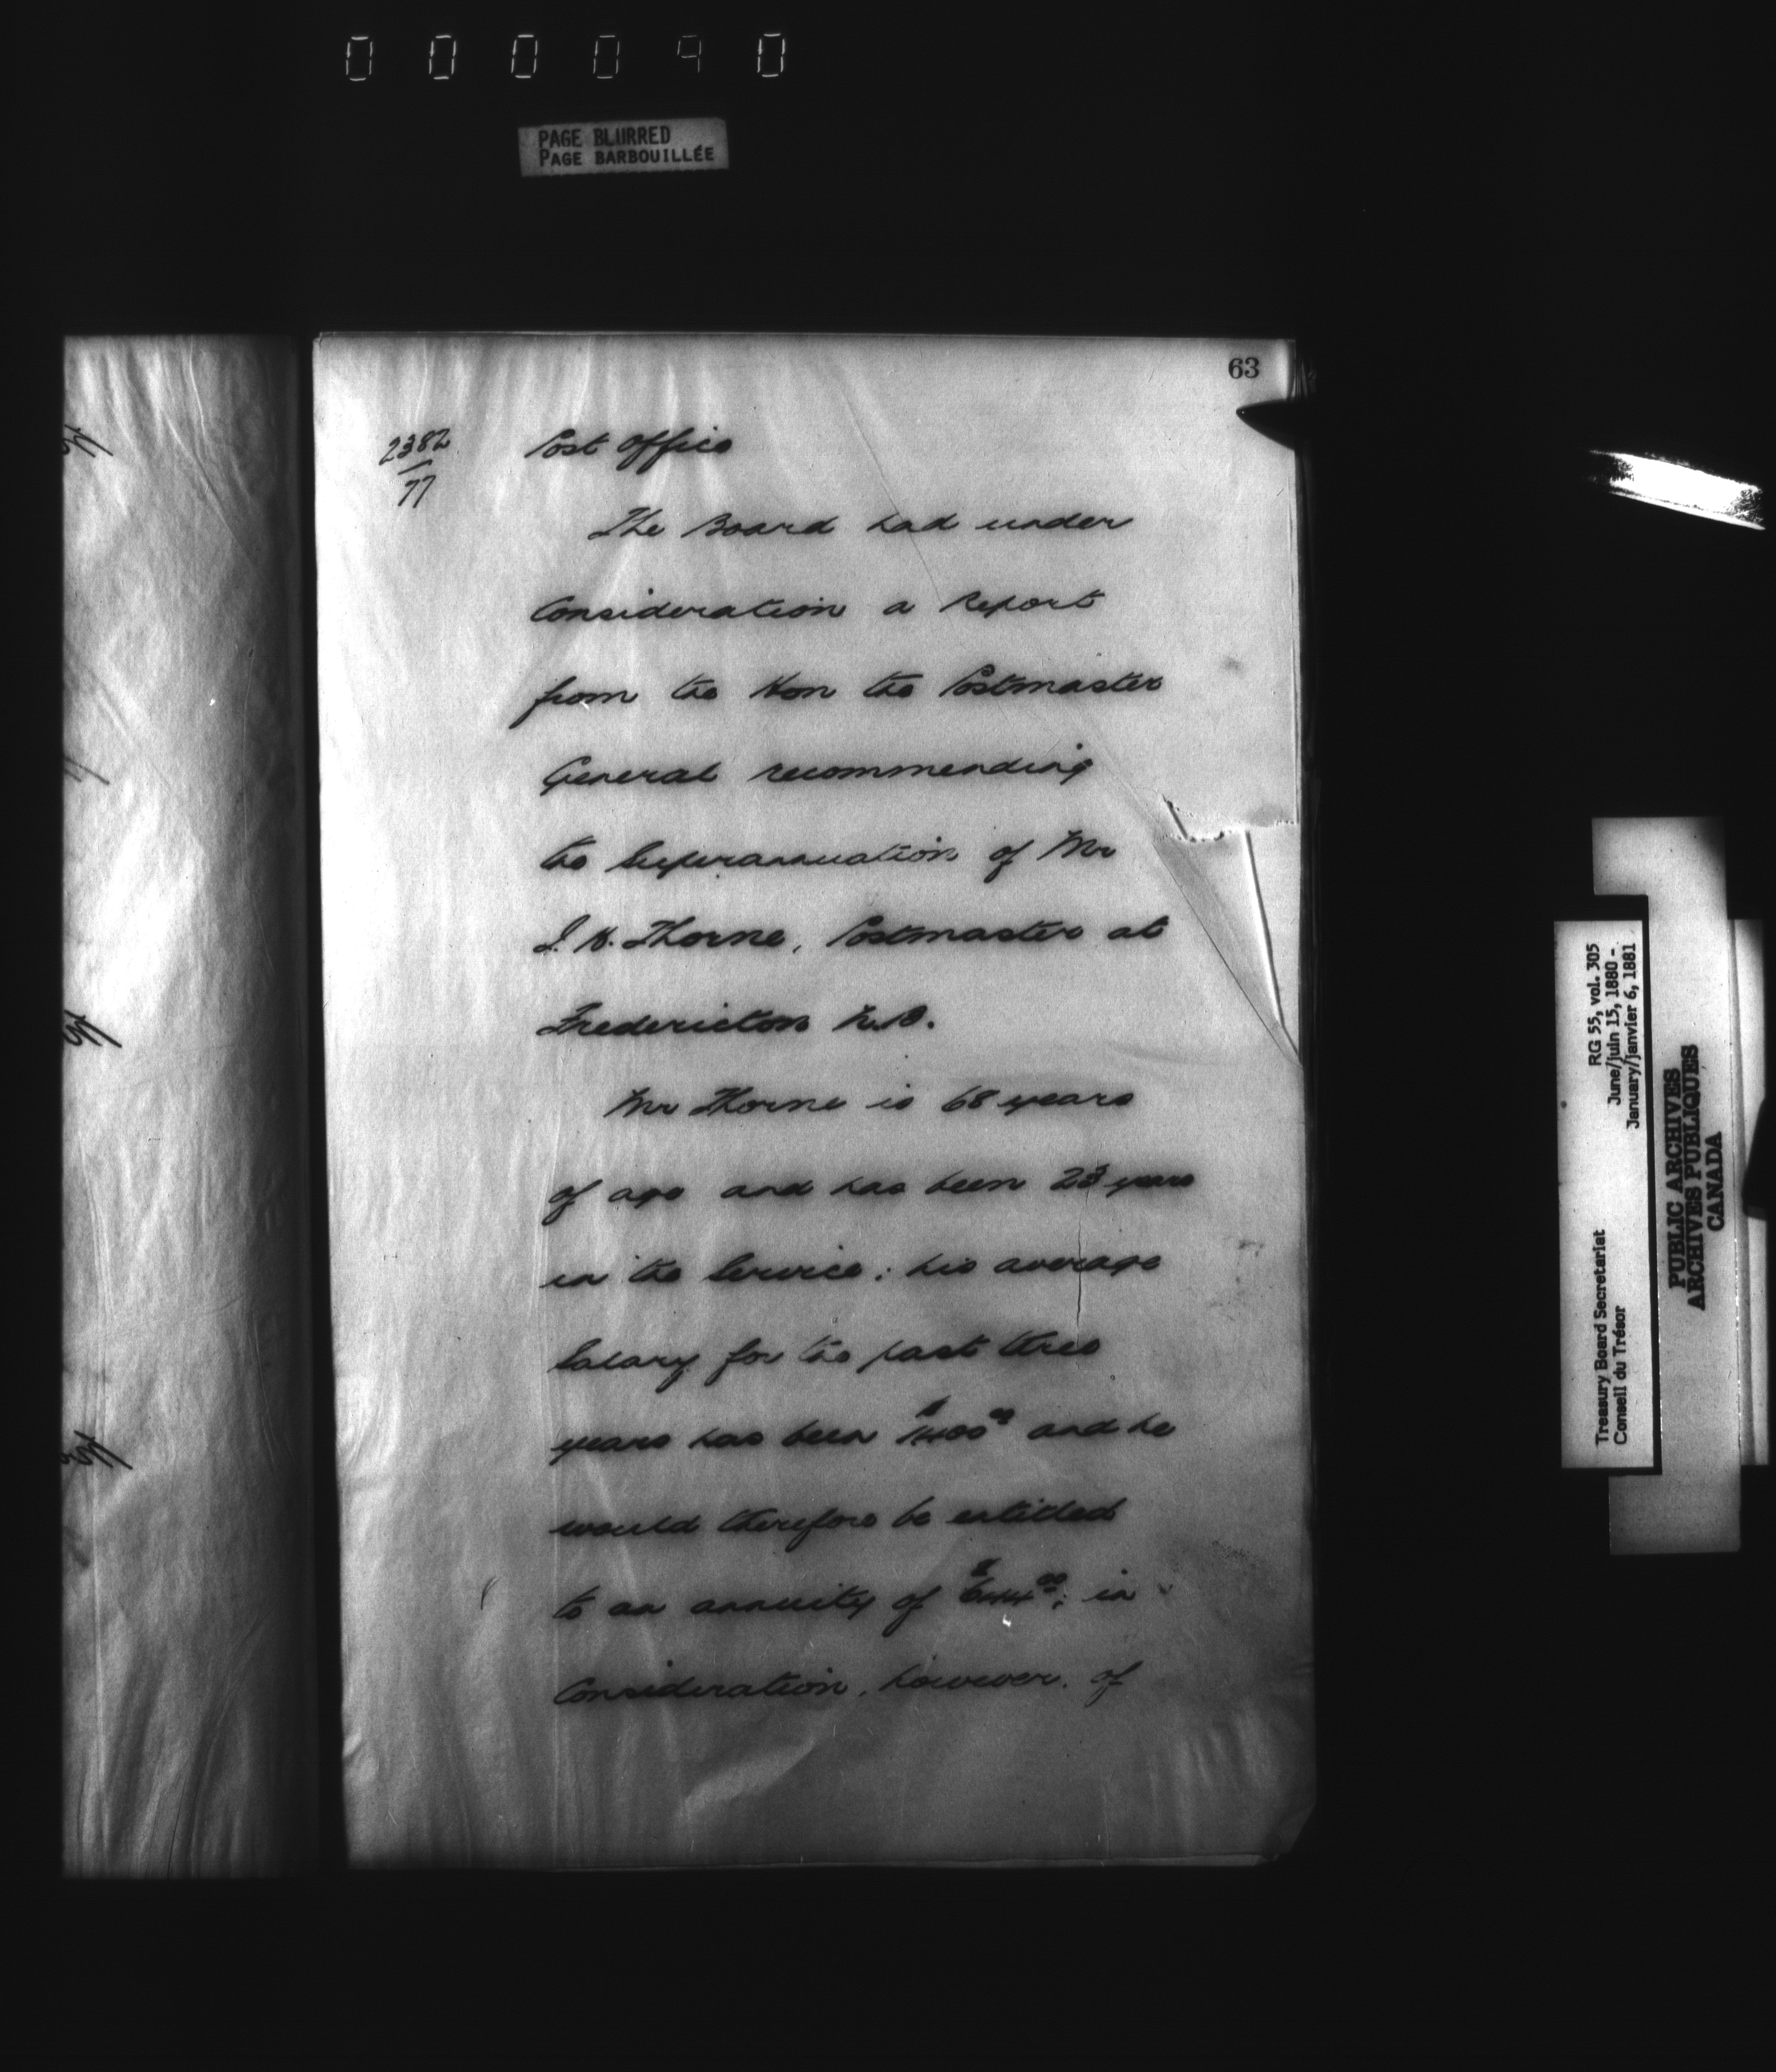 000090
PAGE BLURRED
PAGE BARBOUILLÉE
63
2382
77
Post Office
The Board had under
Consideration a Report
from the Hon the Postmaster
General recommending
the Superannuation of Mr
Thorne, Postmaster at
Fredericton N.B.
Mr Thorne is 68 years
of age and has been 23 years
in the Service; his average
Salary for the past three
years has been $1400 00 and he
would therefore be entitled
to an annuity of $644 00; in
Consideration, however, of
Treasury Board Secretariat
Conseil du Trésor
RG 55, vol. 305
June/juin 15, 1880 -
January/janvier 6, 1881
PUBLIC ARCHIVES
ARCHIVES PUBLIQUES
CANADA